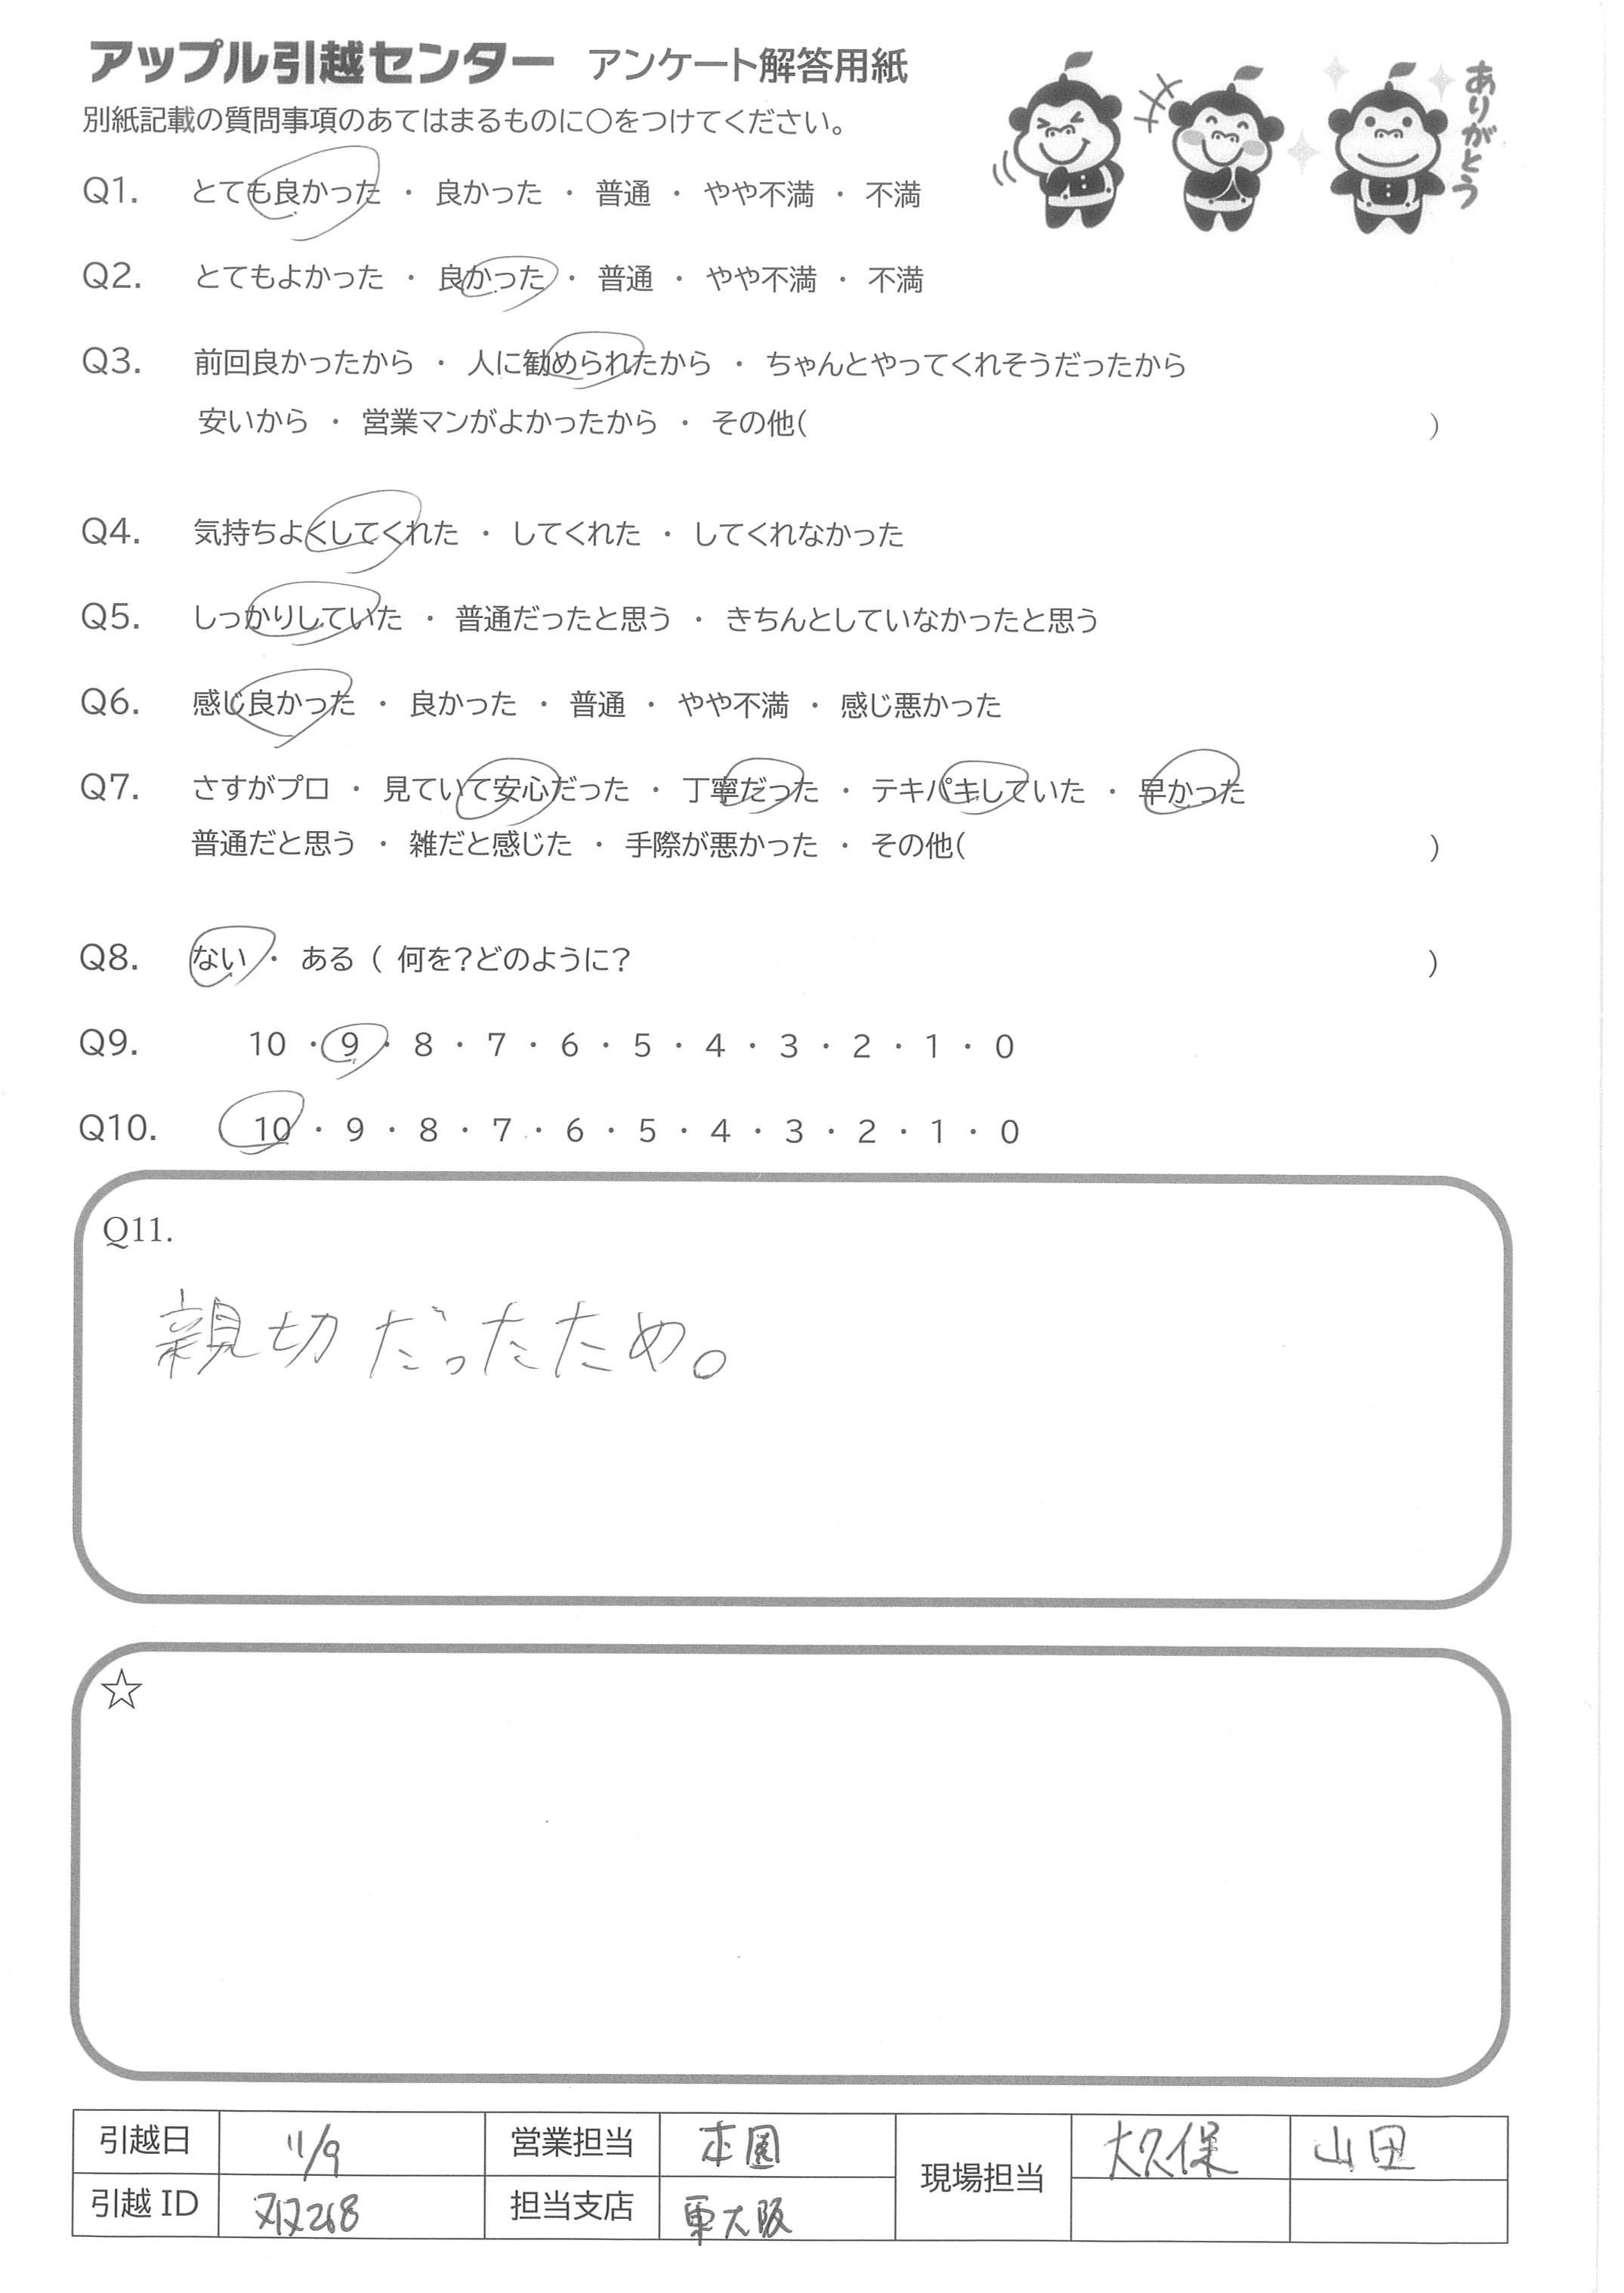 アップル引越センター アンケート解答用紙
別紙記載の質問事項のあてはまるものに○をつけてください。
ありがとう
Q1. とても良かった ・ 良かった ・ 普通 ・ やや不満 ・ 不満
Q2. とてもよかった ・ 良かった ・ 普通 ・ やや不満 ・ 不満
Q3. 前回良かったから ・ 人に勧められたから ・ ちゃんとやってくれそうだったから
安いから ・ 営業マンがよかったから ・ その他( )
Q4. 気持ちよくしてくれた ・ してくれた ・ してくれなかった
Q5. しっかりしていた ・ 普通だったと思う ・ きちんとしていなかったと思う
Q6. 感じ良かった ・ 良かった ・ 普通 ・ やや不満 ・ 感じ悪かった
Q7. さすがプロ ・ 見ていて安心だった ・ 丁寧だった ・ テキパキしていた ・ 早かった
普通だと思う ・ 雑だと感じた ・ 手際が悪かった ・ その他( )
Q8. ない ・ ある ( 何を?どのように? )
Q9. 10 ・ 9 ・ 8 ・ 7 ・ 6 ・ 5 ・ 4 ・ 3 ・ 2 ・ 1 ・ 0
Q10. 10 ・ 9 ・ 8 ・ 7 ・ 6 ・ 5 ・ 4 ・ 3 ・ 2 ・ 1 ・ 0
Q11.
親切だったため。
☆
引越日 11/9 営業担当 本園 現場担当 大久保 山田
引越ID 担当支店 東大阪